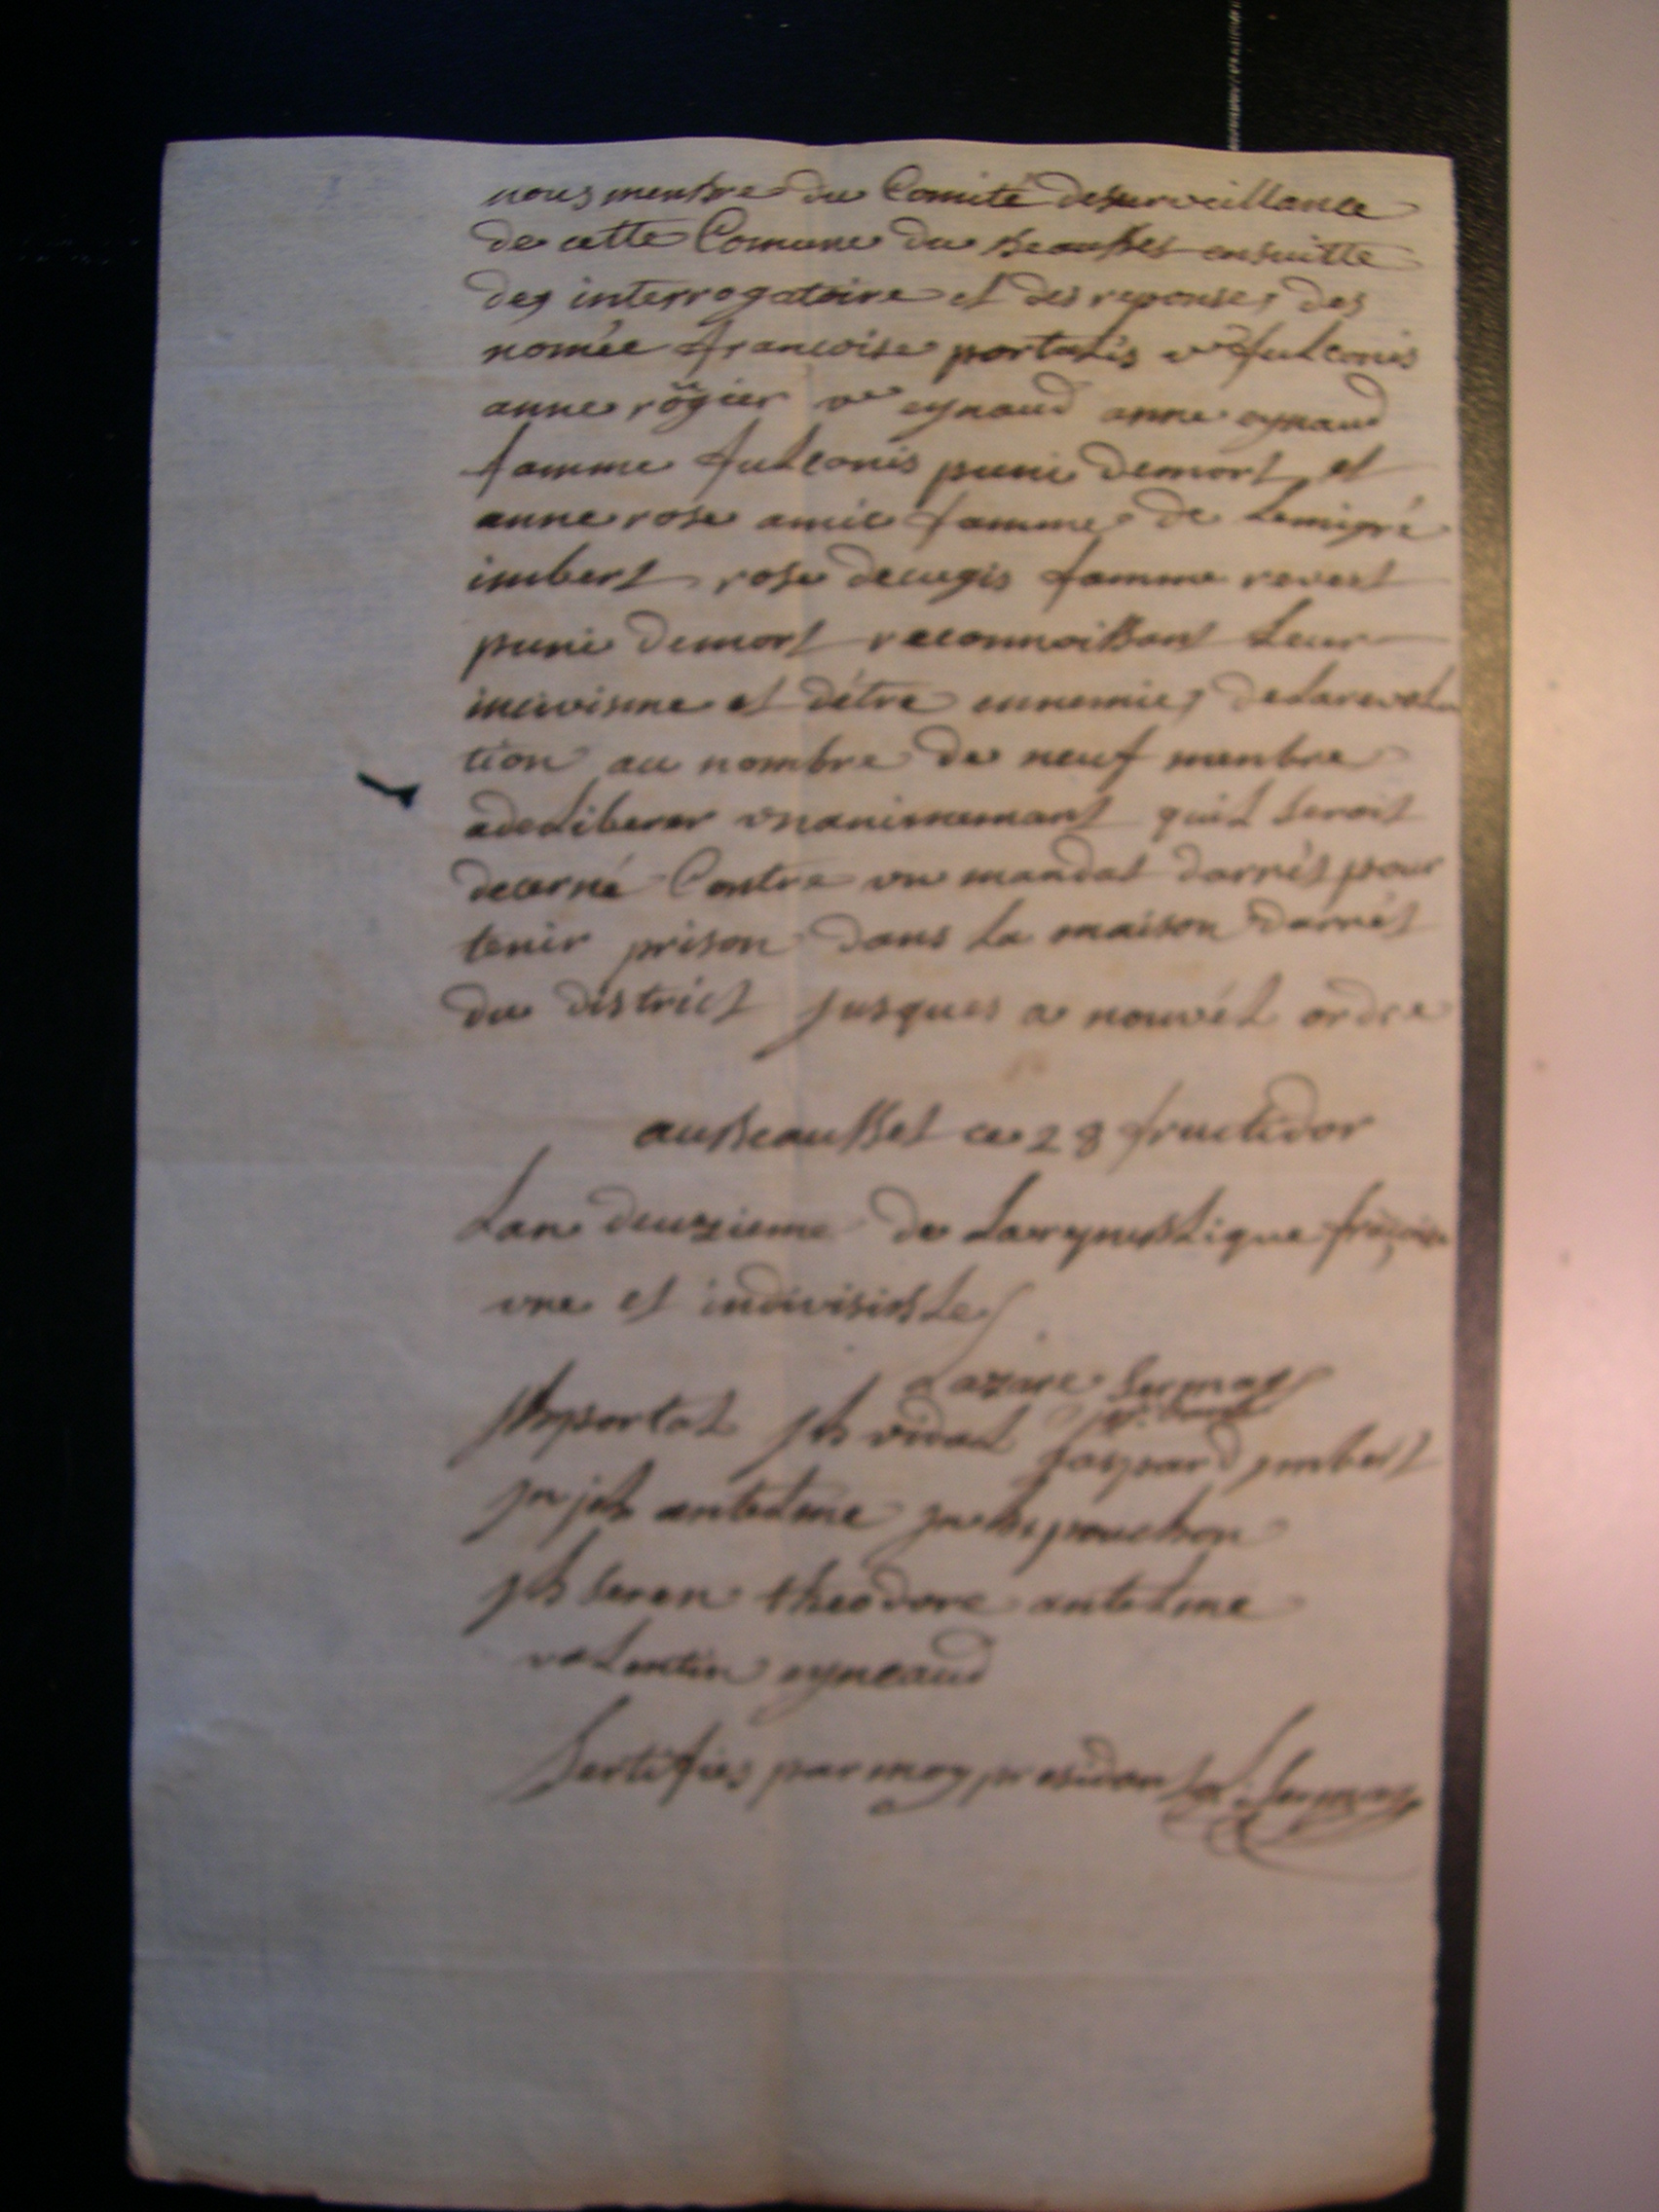 nous menbre du Comité desurveillance
de cette Comune du Beausset ensuitte
des interrogatoire et des reponses des
nomée francoise portalis ve fulconis
anne rogier ve eynaud anne eynaud
famme fulconis puni demort et
anne rose amic famme de Lemigré
imbert rose decugis famme revest
puni demort reconnoissant Leur
incivisme et dètre ennemies delarevolu
tion au nombre de neuf menbre
adeliberer unanimemant quil seroit
decerné Contre un mandat darrét pour
tenir prison dans La maison darrét
du district jusques a nouvél ordre
auBeausset ce 28 fructidor
Lan deuzieme de Larepublique françoise
une et indivisible
Lazare Sermay
jh portal jh vidal
gaspard imbert
jn jh antelme pouchon
jh seren theodore antelme
valentin eyneaud
Sertifies par moy presidant Sermay